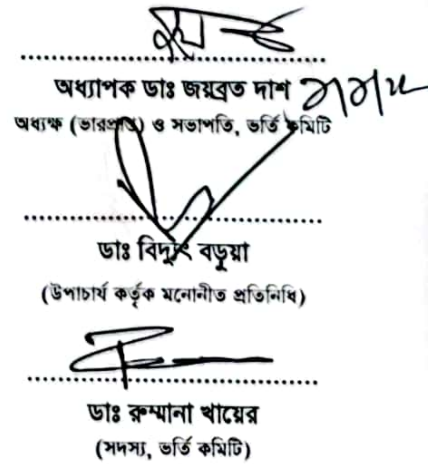 অধ্যাপক ডাঃ জয়ব্রত দাশ
অধ্যক্ষ (ভারপ্রাপ্ত) ও সভাপতি, ভর্তি কমিটি
ডাঃ বিদ্যুৎ বড়ুয়া
(উপাচার্য কর্তৃক মনোনীত প্রতিনিধি)
ডাঃ রুম্মানা খায়ের
(সদস্য, ভর্তি কমিটি)